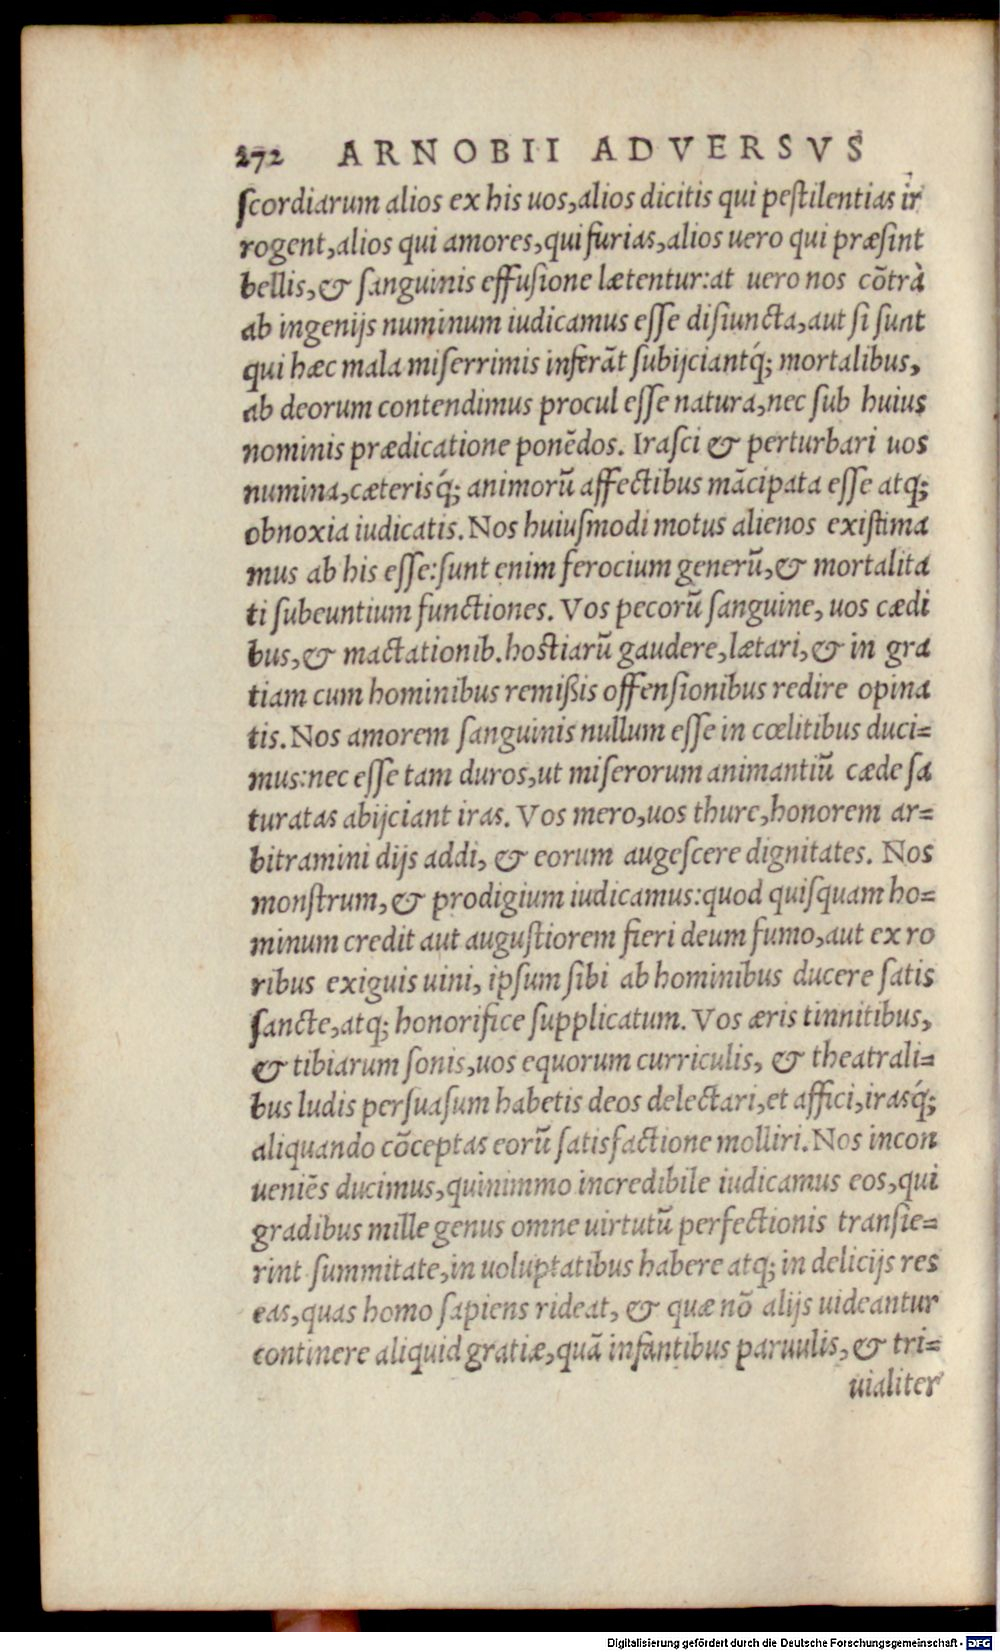 272 ARNOBII ADVERSVS
scordiarum alios ex his uos, alios dicitis qui pestilentias ir
rogent, alios qui amores, qui furias, alios uero qui præsint
bellis, & sanguinis effusione lætentur: at uero nos cōtrà
ab ingenijs numinum iudicamus esse disiuncta, aut si sunt
qui hæc mala miserrimis inferāt subijciantq́; mortalibus,
ab deorum contendimus procul esse natura, nec sub huius
nominis prædicatione ponēdos. Irasci & perturbari uos
numina, cæterisq́; animorū affectibus mācipata esse atq;
obnoxia iudicatis. Nos huiusmodi motus alienos existima
mus ab his esse: sunt enim ferocium generū, & mortalita
ti subeuntium functiones. Vos pecorū sanguine, uos cædi
bus, & mactationib. hostiarū gaudere, lætari, & in gra
tiam cum hominibus remißis offensionibus redire opina
tis. Nos amorem sanguinis nullum esse in cœlitibus duci=
mus: nec esse tam duros, ut miserorum animantiū cæde sa
turatas abijciant iras. Vos mero, uos thure, honorem ar=
bitramini dijs addi, & eorum augescere dignitates. Nos
monstrum, & prodigium iudicamus: quod quisquam ho=
minum credit aut augustiorem fieri deum fumo, aut ex ro
ribus exiguis uini, ipsum sibi ab hominibus ducere satis
sancte, atq; honorifice supplicatum. Vos æris tinnitibus,
& tibiarum sonis, uos equorum curriculis, & theatrali=
bus ludis persuasum habetis deos delectari, et affici, irasq́;
aliquando cōceptas eorū satisfactione molliri. Nos incon
ueniēs ducimus, quinimmo incredibile iudicamus eos, qui
gradibus mille genus omne uirtutū perfectionis transie=
rint summitate, in uoluptatibus habere atq; in delicijs res
eas, quas homo sapiens rideat, & quæ nō alijs uideantur
continere aliquid gratiæ, quā infantibus paruulis, & tri=
uialiter
Digitalisierung gefördert durch die Deutsche Forschungsgemeinschaft - DFG